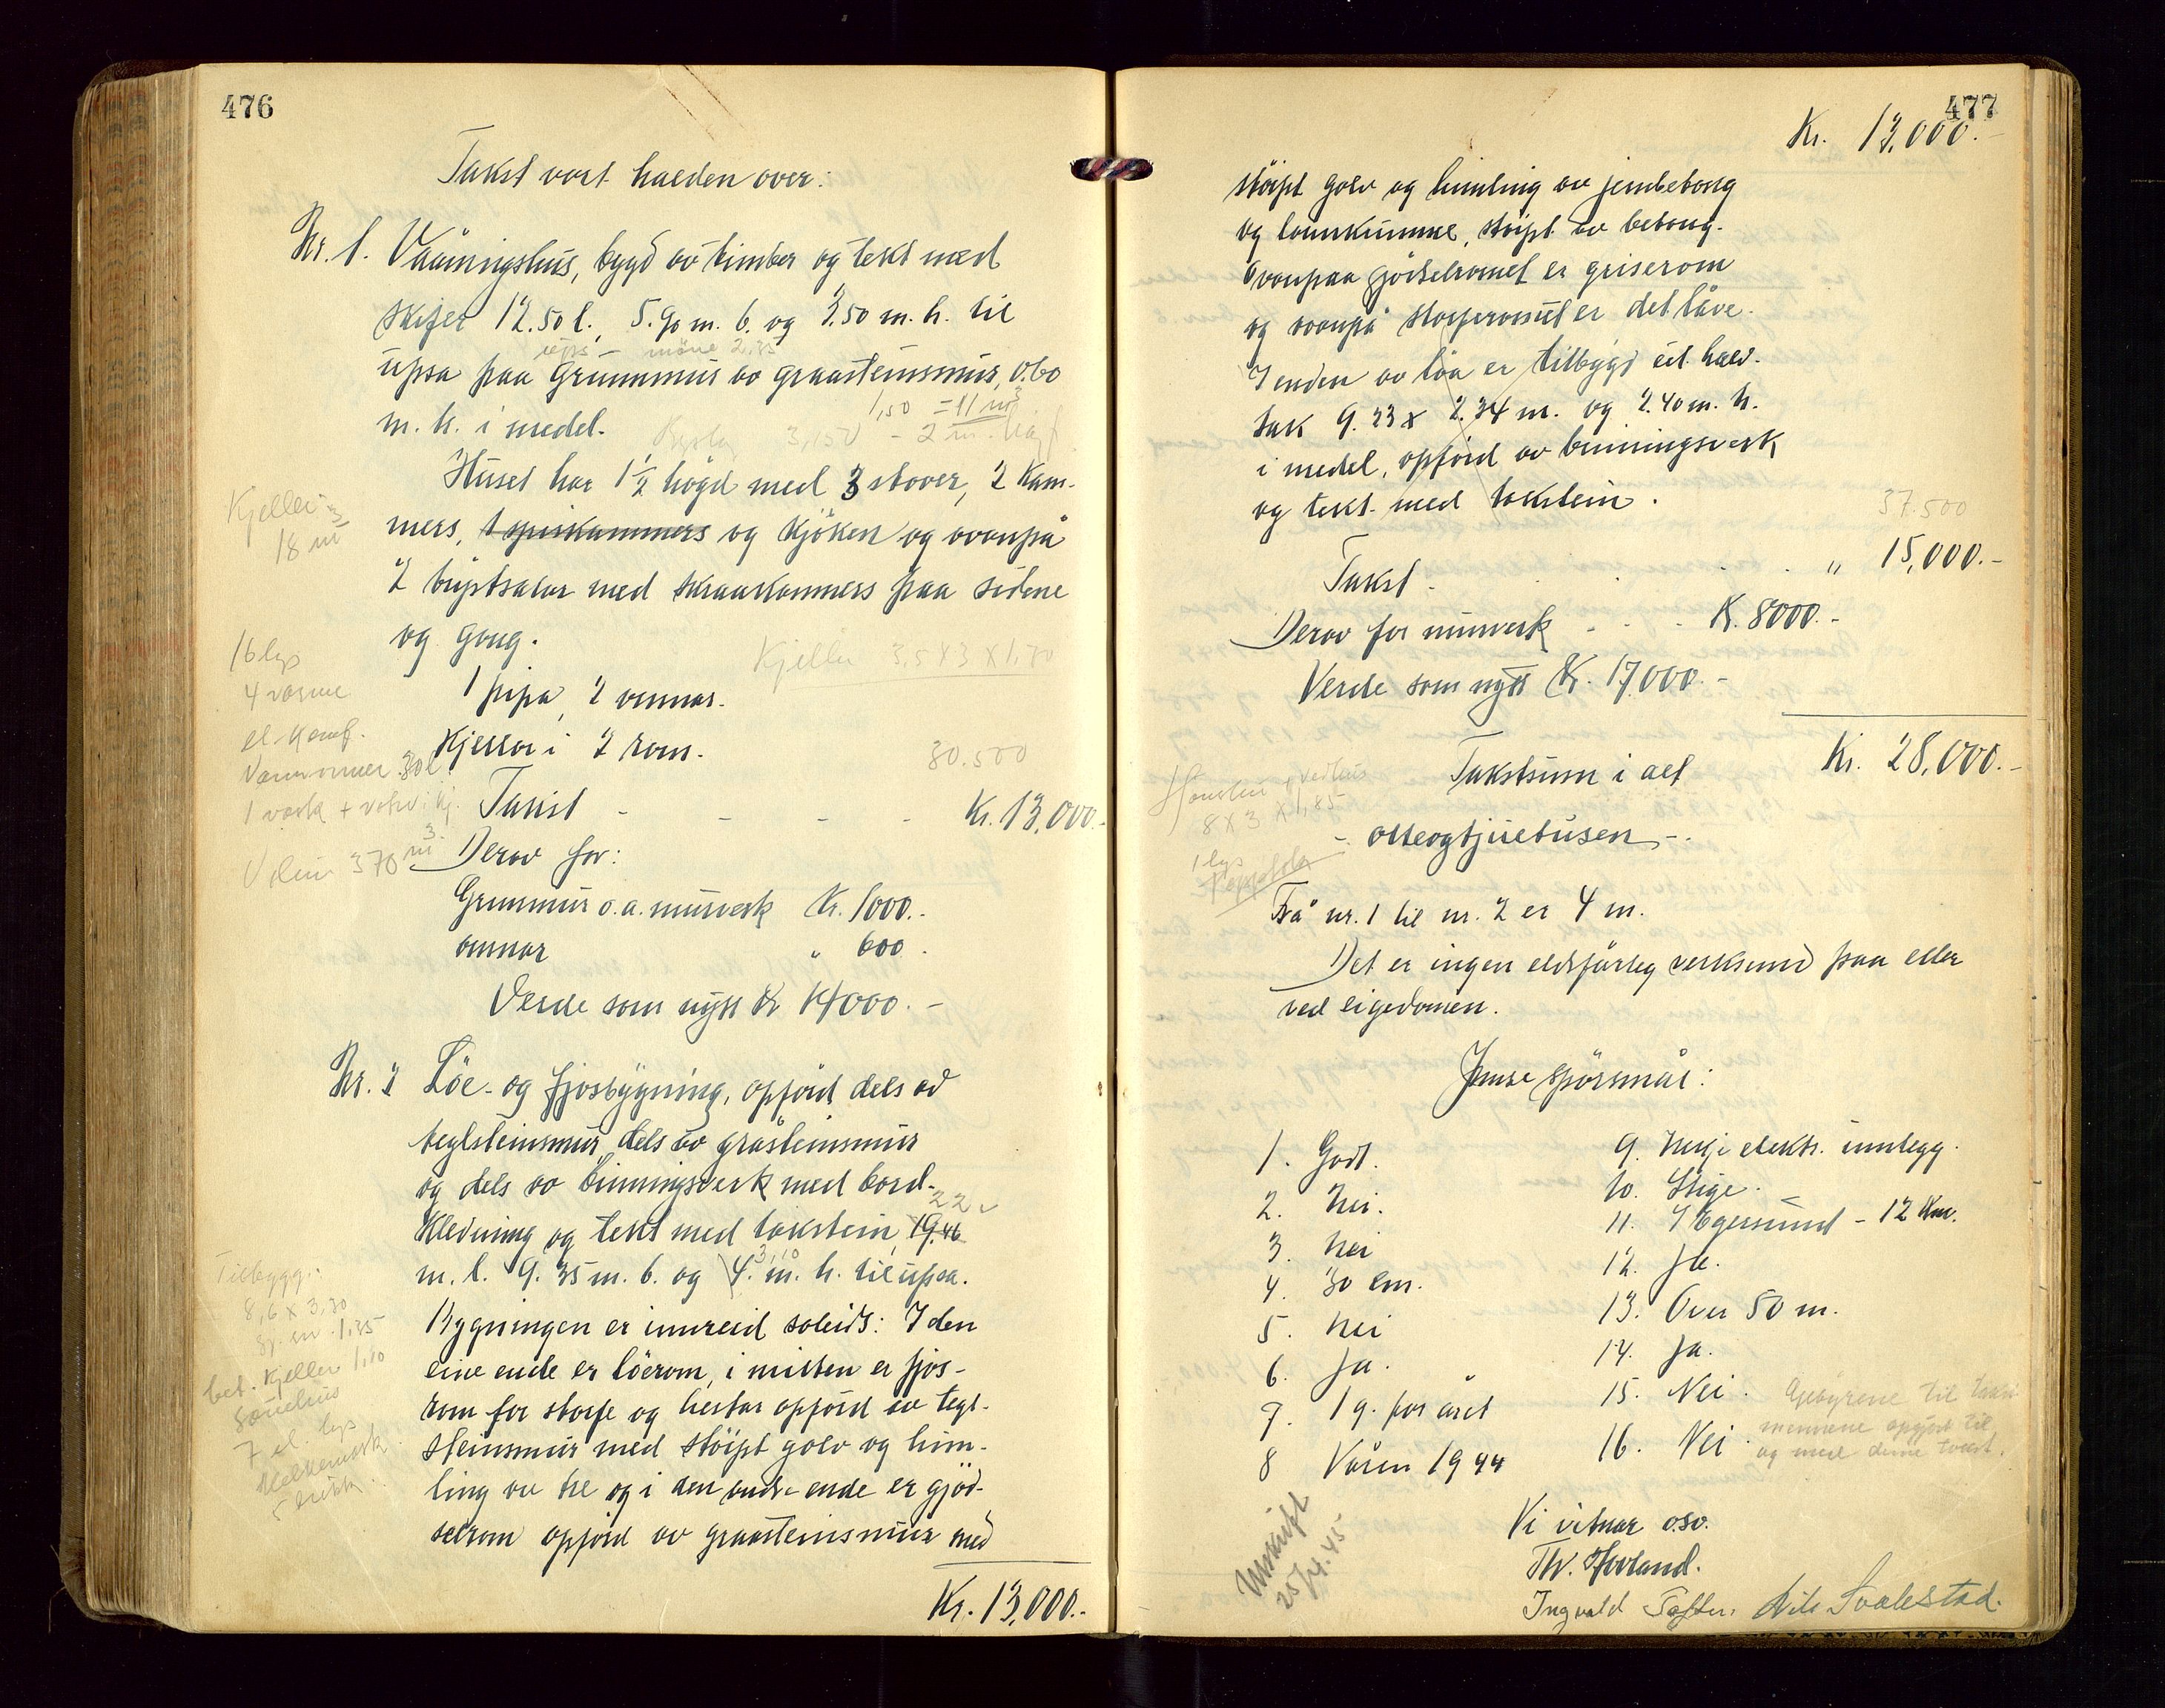 476
Takst vart halden over:
Nr. 1. Vaaningshus, bygd av timber og tekt med
skifer 12.50 l. 5.90 m. b. og 3.50 m. h. til
ups – møne 2.85
upsa paa Grunnmur av graasteinsmur, 0.60
1,50 = 11 m³
m. h. i medel.
3,150 – 2 m. høgt
Huset har 1½ høgd med 3 stover, 2 kam-
mers, 1 spiskammers og kjøken og ovanpå
2 kvistsalar med skraakammers paa sidene
og gong.
Kjeller 3,5 x 3 x 1,70
1 pipa, 2 omnar.
Kjellar i 2 rom.
30.500
Takst - - - - Kr. 13,000.-
Derav for:
Grunnmur o.a. murverk Kr. 1000.-
omnar " 600.
Verde som nytt Kr 14000.-
Kjeller
18 m³
16 lys
4 varme
el. komf.
Varmvannsber. 30 l.
1 vask + vatn i kj.
Volum 370 m³
Nr. 2 Löe- og fjosbygning, opförd dels av
teglsteinsmur, dels av gråsteinsmur
og dels av binningsverk med bord-
22
kledning og tekt med takstein, 19.46
3,10
m. l. 9.35 m. b. og 4. m. h. til upsa.
Bygningen er innreid soleids: I den
eine ende er löerom, i midten er fjos-
rom for storfe og hestar opförd av tegl-
steinsmur med stöipt golv og him-
ling av tre og i den andre ende er gjöd-
selrom opförd av graasteinsmur med
Tilbygg:
8,6 x 3,30
1,35
bet. kjeller 1,10
Sauehus
7 el. lys
Melkemask.
Kr. 13,000.-
477
Kr. 13,000.-
stöipt golv og himling av jernbetong
og landkumme, stöipt av betong.
Ovanpaa gjödselromet er griserom
og ovanpå storferomet er det låve.
I enden av löa er tilbygd eit halv-
tak 9.23 x 2.34 m. og 2.40 m. h.
i medel, opförd av binningsverk
og tekt med takstein.
37.500
Takst - . . . " 15,000.-
Derav for murverk - - - K. 8000.-
Verde som nytt Kr. 17,000.-
Takstsum i alt Kr. 28,000.-
- otteogtjuetusen -.
Hønsehus + vedhus
8 x 3 x 1,85
1 lys
Frå nr. 1 til nr. 2 er 4 m.
Det er ingen eldsfårleg verksemd paa eller
ved eigedomen.
Ymse spörsmål:
1. Godt.
2. Nei.
3. Nei
4. 30 cm.
5. Nei
6. Ja.
7. 1 g. for året
8 Våren 1944
9. Herje elektr. innlegg.
10. Stige.
11. I Egersund – 12 km.
12. Ja.
13. Over 50 m.
14. Ja.
15. Nei.
16. Nei.
Gebyrene til takst
mennene opgjort til
og med denne takst.
Utskrift
25/4.45
Vi vitnar osv.
Th. Hovland.
Ingvald Tøften. Nils Svalestad.